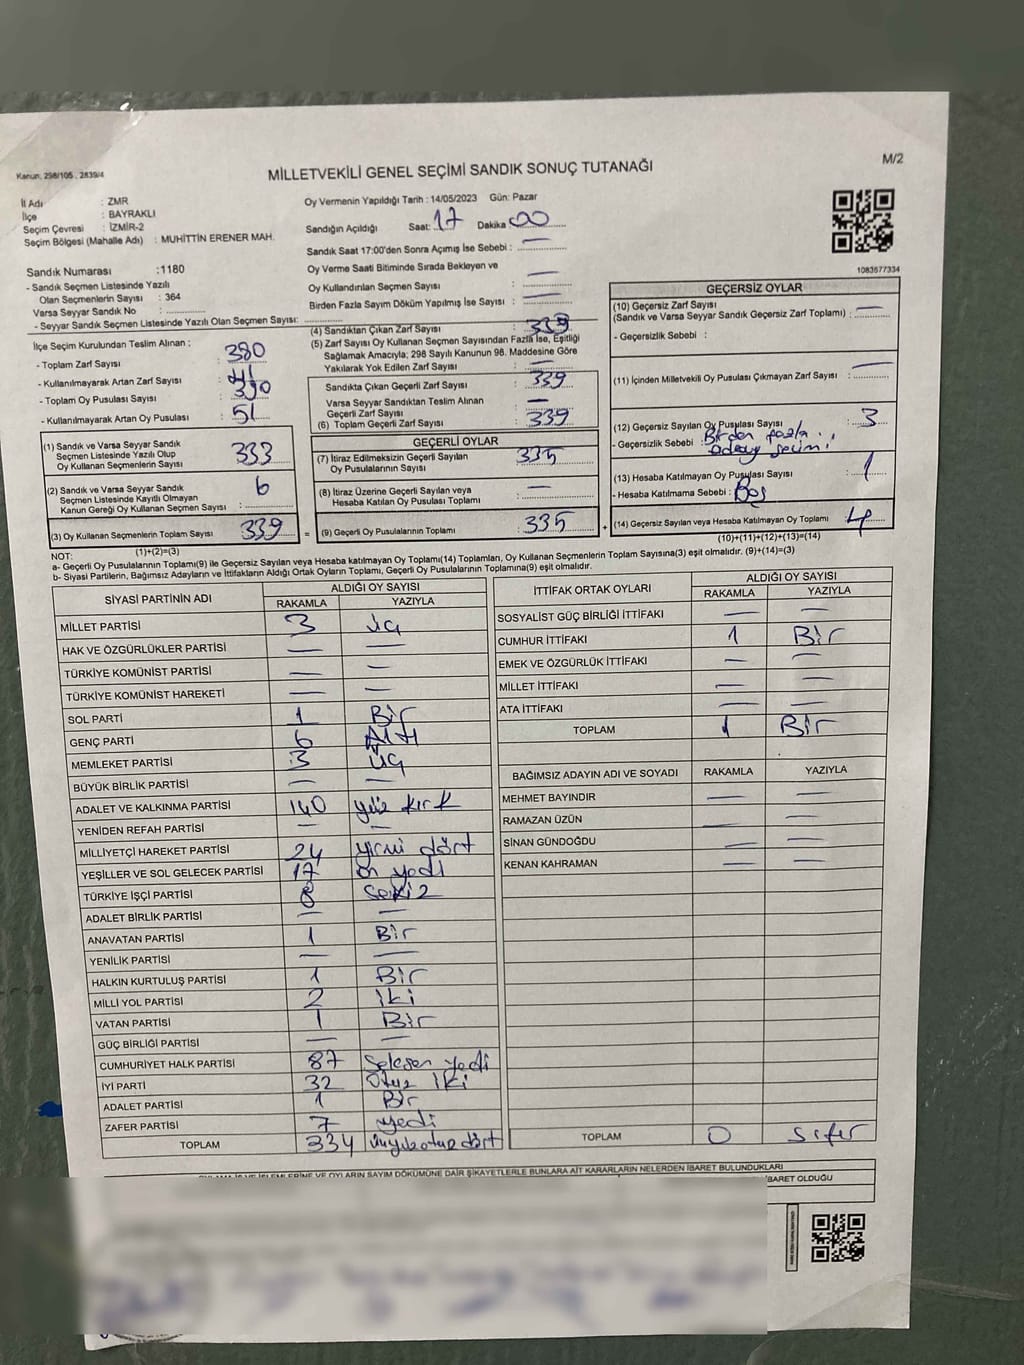 Kanun, 298/105, 2839/4
MİLLETVEKİLİ GENEL SEÇİMİ SANDIK SONUÇ TUTANAĞI
M/2
İl Adı : ZMR
İlçe : BAYRAKLI
Seçim Çevresi : İZMİR-2
Seçim Bölgesi (Mahalle Adı) : MUHİTTİN ERENER MAH.
Oy Vermenin Yapıldığı Tarih : 14/05/2023 Gün: Pazar
Sandığın Açıldığı Saat: 17 Dakika 00
Sandık Saat 17:00'den Sonra Açımış İse Sebebi : —
Oy Verme Saati Bitiminde Sırada Bekleyen ve
Oy Kullandırılan Seçmen Sayısı : —
Birden Fazla Sayım Döküm Yapılmış İse Sayısı : —
1083677334
Sandık Numarası : 1180
- Sandık Seçmen Listesinde Yazılı
Olan Seçmenlerin Sayısı : 364
Varsa Seyyar Sandık No :
- Seyyar Sandık Seçmen Listesinde Yazılı Olan Seçmen Sayısı:
İlçe Seçim Kurulundan Teslim Alınan :
- Toplam Zarf Sayısı : 380
- Kullanılmayarak Artan Zarf Sayısı : 41
- Toplam Oy Pusulası Sayısı : 390
- Kullanılmayarak Artan Oy Pusulası : 51
(1) Sandık ve Varsa Seyyar Sandık
Seçmen Listesinde Yazılı Olup
Oy Kullanan Seçmenlerin Sayısı : 333
(2) Sandık ve Varsa Seyyar Sandık
Seçmen Listesinde Kayıtlı Olmayan
Kanun Gereği Oy Kullanan Seçmen Sayısı : 6
(3) Oy Kullanan Seçmenlerin Toplam Sayısı : 339
(1)+(2)=(3)
(4) Sandıktan Çıkan Zarf Sayısı : 339
(5) Zarf Sayısı Oy Kullanan Seçmen Sayısından Fazla İse, Eşitliği
Sağlamak Amacıyla; 298 Sayılı Kanunun 98. Maddesine Göre
Yakılarak Yok Edilen Zarf Sayısı : —
Sandıkta Çıkan Geçerli Zarf Sayısı : 339
Varsa Seyyar Sandıktan Teslim Alınan
Geçerli Zarf Sayısı : —
(6) Toplam Geçerli Zarf Sayısı : 339
GEÇERLİ OYLAR
(7) İtiraz Edilmeksizin Geçerli Sayılan
Oy Pusulalarının Sayısı : 335
(8) İtiraz Üzerine Geçerli Sayılan veya
Hesaba Katılan Oy Pusulası Toplamı : —
= (9) Geçerli Oy Pusulalarının Toplamı : 335 +
GEÇERSİZ OYLAR
(10) Geçersiz Zarf Sayısı
(Sandık ve Varsa Seyyar Sandık Geçersiz Zarf Toplamı) : —
- Geçersizlik Sebebi :
(11) İçinden Milletvekili Oy Pusulası Çıkmayan Zarf Sayısı : —
(12) Geçersiz Sayılan Oy Pusulası Sayısı : 3
- Geçersizlik Sebebi : Birden fazla
aday seçimi
(13) Hesaba Katılmayan Oy Pusulası Sayısı : 1
- Hesaba Katılmama Sebebi : Boş
(14) Geçersiz Sayılan veya Hesaba Katılmayan Oy Toplamı : 4
(10)+(11)+(12)+(13)=(14)
NOT:
a- Geçerli Oy Pusulalarının Toplamı(9) ile Geçersiz Sayılan veya Hesaba katılmayan Oy Toplamı(14) Toplamları, Oy Kullanan Seçmenlerin Toplam Sayısına(3) eşit olmalıdır. (9)+(14)=(3)
b- Siyasi Partilerin, Bağımsız Adayların ve İttifakların Aldığı Ortak Oyların Toplamı, Geçerli Oy Pusulalarının Toplamına(9) eşit olmalıdır.
SİYASİ PARTİNİN ADI ALDIĞI OY SAYISI
RAKAMLA YAZIYLA
MİLLET PARTİSİ 3 üç
HAK VE ÖZGÜRLÜKLER PARTİSİ — —
TÜRKİYE KOMÜNİST PARTİSİ — —
TÜRKİYE KOMÜNİST HAREKETİ — —
SOL PARTİ 1 Bir
GENÇ PARTİ 6 Altı
MEMLEKET PARTİSİ 3 Üç
BÜYÜK BİRLİK PARTİSİ — —
ADALET VE KALKINMA PARTİSİ 140 yüz kırk
YENİDEN REFAH PARTİSİ — —
MİLLİYETÇİ HAREKET PARTİSİ 24 yirmi dört
YEŞİLLER VE SOL GELECEK PARTİSİ 17 on yedi
TÜRKİYE İŞÇİ PARTİSİ 8 sekiz
ADALET BİRLİK PARTİSİ — —
ANAVATAN PARTİSİ 1 Bir
YENİLİK PARTİSİ — —
HALKIN KURTULUŞ PARTİSİ 1 Bir
MİLLİ YOL PARTİSİ 2 iki
VATAN PARTİSİ 1 Bir
GÜÇ BİRLİĞİ PARTİSİ — —
CUMHURİYET HALK PARTİSİ 87 Seksen yedi
İYİ PARTİ 32 Otuz iki
ADALET PARTİSİ 1 Bir
ZAFER PARTİSİ 7 yedi
TOPLAM 334 üçyüzotuzdört
İTTİFAK ORTAK OYLARI ALDIĞI OY SAYISI
RAKAMLA YAZIYLA
SOSYALİST GÜÇ BİRLİĞİ İTTİFAKI — —
CUMHUR İTTİFAKI 1 Bir
EMEK VE ÖZGÜRLÜK İTTİFAKI — —
MİLLET İTTİFAKI — —
ATA İTTİFAKI — —
TOPLAM 1 Bir
BAĞIMSIZ ADAYIN ADI VE SOYADI RAKAMLA YAZIYLA
MEHMET BAYINDIR — —
RAMAZAN ÜZÜN — —
SİNAN GÜNDOĞDU — —
KENAN KAHRAMAN — —
TOPLAM 0 Sıfır
OYLARIN SAYIM DÖKÜMÜNE DAİR ŞİKAYETLERLE BUNLARA AİT KARARLARIN NELERDEN İBARET BULUNDUKLARI
İBARET OLDUĞU